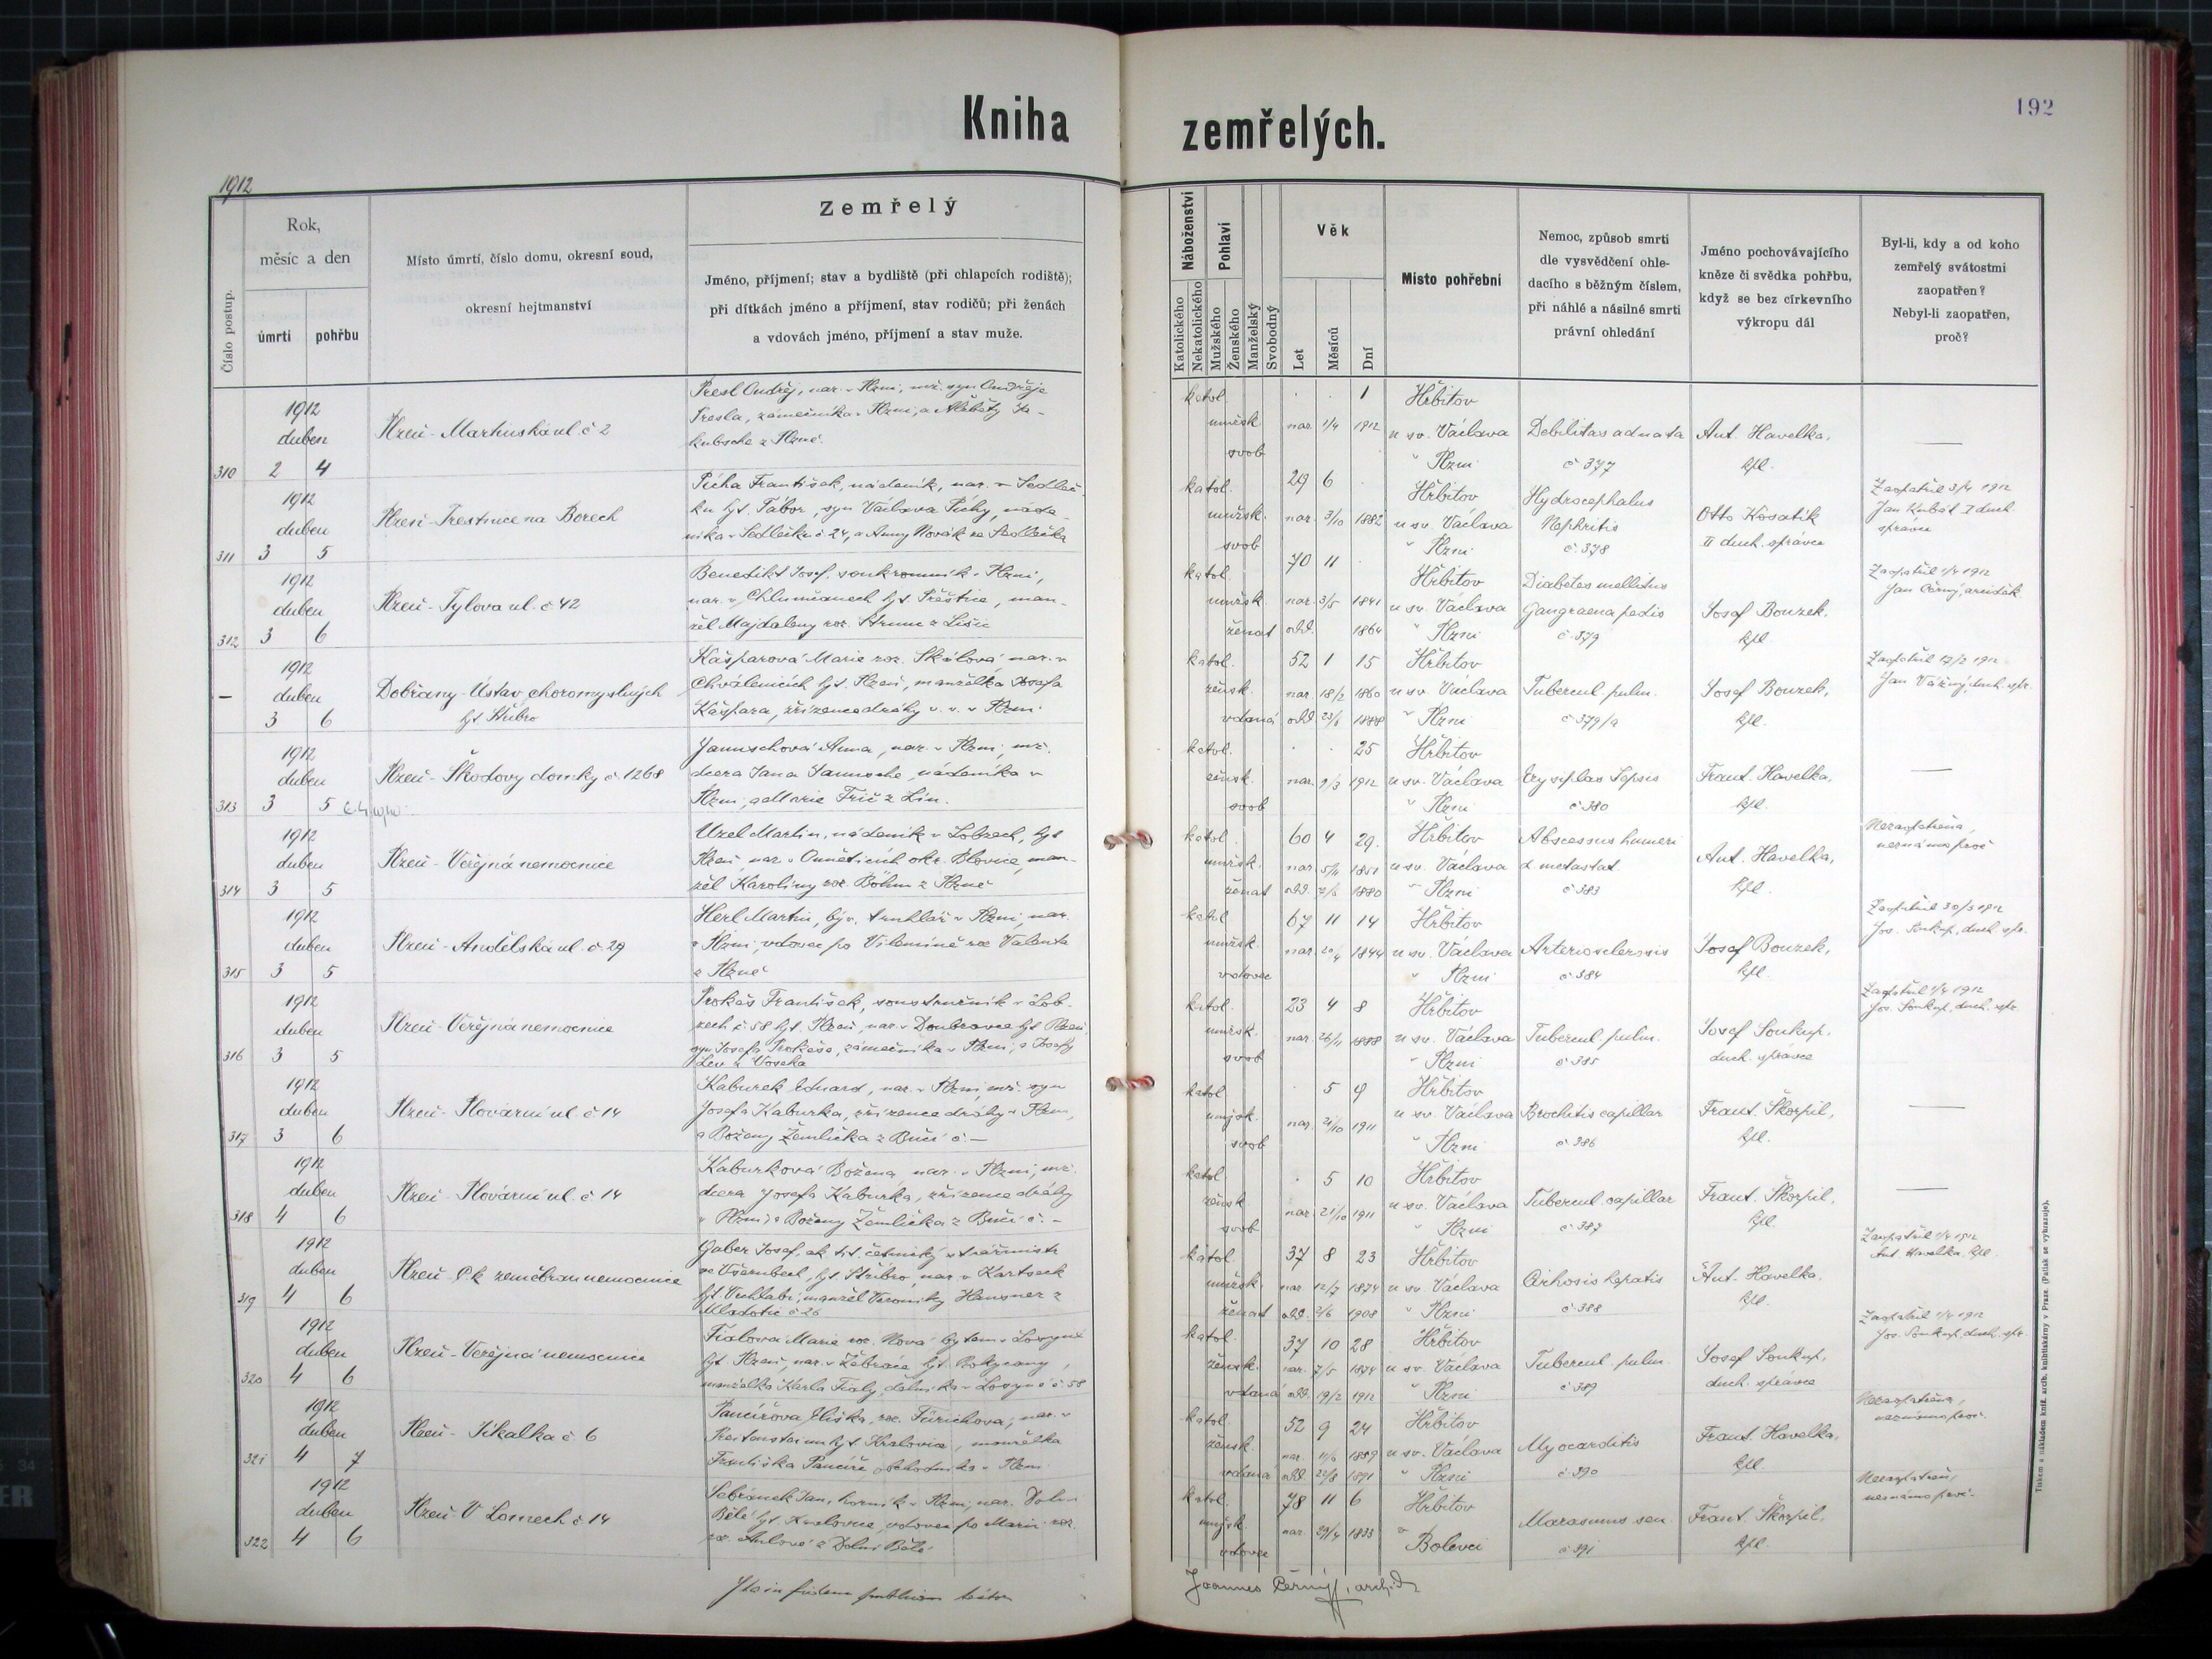 Kniha zemřelých.
192
1912
Číslo postup.
Rok,
měsíc a den
úmrtí
pohřbu
Místo úmrtí, číslo domu, okresní soud,
okresní hejtmanství
Zemřelý
Jméno, příjmení; stav a bydliště (při chlapcích rodiště);
při dítkách jméno a příjmení, stav rodičů; při ženách
a vdovách jméno, příjmení a stav muže.
Náboženství
Katolického
Nekatolického
Pohlaví
Mužského
Ženského
Manželský
Svobodný
Věk
Let
Měsíců
Dní
Místo pohřební
Nemoc, způsob smrti
dle vysvědčení ohle-
dacího s běžným číslem,
při náhlé a násilné smrti
právní ohledání
Jméno pochovávajícího
kněze či svědka pohřbu,
když se bez církevního
výkropu dál
Byl-li, kdy a od koho
zemřelý svátostmi
zaopatřen?
Nebyl-li zaopatřen,
proč?
310
1912
duben
2 4
Plzeň - Martinská ul. č 2
Presl Ondřej, nar. v Plzni, mž. syn Ondřeje
Presla, zámečníka v Plzni, a Alžběty Ja-
kubsche z Plzně.
katol.
mužsk.
svob
1
nar. 1/4 1912
Hřbitov
u sv. Václava
v Plzni
Debilitas adnata
č 377
Ant. Havelka,
kpl.
—
311
1912
duben
3 5
Plzeň - Trestnice na Borech
Pícha František, nádeník, nar. v Sedleč-
ku hjt. Tábor, syn Václava Píchy, náde-
níka v Sedlečku č 24, a Anny Novák ze Sedlečka
katol.
mužsk.
svob
29 6
nar. 3/10 1882
Hřbitov
u sv. Václava
v Plzni
Hydrocephalus
Nephritis
č. 378
Otto Kosatík
II duch. správce
Zaopatřil 3/4 1912
Jan Kubát I duch
správce
312
1912
duben
3 6
Plzeň - Tylova ul. č 42
Benedikt Josef, soukromník v Plzni,
nar. v Chlumčanech hjt. Přeštice, man-
žel Majdaleny roz. Strunc z Lišic
katol.
mužsk.
ženat
70 11
nar. 3/5 1841
odd. 1864
Hřbitov
u sv. Václava
v Plzni
Diabetes mellitus
Gangraena pedis
č. 379
Josef Bouzek,
kpl.
Zaopatřil 1/4 1912
Jan Černý, arciděk
—
1912
duben
3 6
Dobřany - Ústav choromyslných
hjt. Stříbro
Kašparová Marie roz. Skálová, nar. v
Chválenicích hjt. Plzeň, manželka Josefa
Kašpara, zřízence dráhy v. v. v Plzni
katol.
žensk.
vdaná
52 1 15
nar. 18/2 1860
odd. 23/1 1888
Hřbitov
u sv. Václava
v Plzni
Tubercul. pulm.
č 379/a
Josef Bouzek,
kpl.
Zaopatřil 17/2 1912
Jan Vážný, duch. spr.
313
1912
duben
3 5
Plzeň - Škodovy domky č. 1268
Januschová Anna, nar. v Plzni, mž.
dcera Jana Janusche, nádeníka v
Plzni, a Marie Frič z Lín.
katol.
žensk.
svob
25
nar. 9/3 1912
Hřbitov
u sv. Václava
v Plzni
Erysiplas Sepsis
č 380
Frant. Havelka,
kpl.
—
314
1912
duben
3 5
Plzeň - Veřejná nemocnice
Uzel Martin, nádeník v Lobzech, hjt
Plzeň, nar. v Ouněticích okr. Blovice, man-
žel Karoliny roz. Böhm z Plzně
katol.
mužsk.
ženat
60 4 29.
nar. 5/11 1851
odd. 1880
Hřbitov
u sv. Václava
v Plzni
Abscessus humeri
d metastat
č 383
Ant. Havelka,
kpl.
315
1912
duben
3 5
Plzeň - Andělská ul. č. 29
Herl Martin, býv. truhlář v Plzni, nar.
v Plzni, vdovec po Vilemíně roz Valenta
z Plzně
katol
mužsk.
vdovec
67 11 14
nar. 20/4 1844
Hřbitov
u sv. Václava
v Plzni
Arteriosclerosis
č 384
Josef Bouzek,
kpl.
Zaopatřil 30/3 1912
Jos. Soukup, duch. spr.
316
1912
duben
3 5
Plzeň - Veřejná nemocnice
Prokeš František, soustružník v Lob-
zech č 58 hjt. Plzeň, nar. v Doubravce hjt Plzeň,
syn Josefa Prokeše, zámečníka v Plzni, a Josefy
Lev z Voseka
katol.
mužsk.
svob
23 4 8
nar. 26/11 1888
Hřbitov
u sv. Václava
v Plzni
Tubercul. pulm.
č 385
Josef Soukup,
duch. správce
Zaopatřil 1/4 1912
Jos. Soukup, duch. spr.
317
1912
duben
3 6
Plzeň - Plovární ul. č 14
Kaburek Eduard, nar. v Plzni, mž. syn
Josefa Kaburka, zřízence dráhy v Plzni,
a Boženy Žemlička z Bučí č. —
katol
mužsk.
svob
5 9
nar. 21/10 1911
Hřbitov
u sv. Václava
v Plzni
Brochitis capillar
č 386
Frant. Škorpil,
kpl.
—
318
1912
duben
4 6
Plzeň - Plovární ul. č 14
Kaburková Božena, nar. v Plzni, mž.
dcera Josefa Kaburka, zřízence dráhy
v Plzni, a Boženy Žemlička z Bučí č. -
katol
žensk.
svob
5 10
nar. 21/10 1911
Hřbitov
u sv. Václava
v Plzni
Tubercul. capillar
č 387
Frant. Škorpil,
kpl.
—
319
1912
duben
4 6
Plzeň - C.k. zeměbran nemocnice
Gaber Josef, ck. tit. četnický strážmistr
ve Všerubech, hjt. Stříbro nar. v
hjt. Vrchlabí, manžel Veroniky Hausner z
Mladotic č 26
katol.
mužsk.
ženat
37 8 23
nar 12/7 1874
odd. 2/6 1908
Hřbitov
u sv. Václava
v Plzni
Cirhosis hepatis
č. 388
Ant. Havelka,
kpl.
Zaopatřil 1/4 1912
Ant. Havelka, kpl.
320
1912
duben
4 6
Plzeň - Veřejná nemocnice
Fialová Marie roz. Nová bytem v
hjt. Plzeň nar. v Žebráce hjt. Rokycany,
manželka Karla Fialy, dělníka v č. 58
katol.
žensk.
vdaná
37 10 28
nar. 7/5 1874
odd. 19/2 1912
Hřbitov
u sv. Václava
v Plzni
Tubercul. pulm.
č 389
Josef Soukup,
duch. správce
Zaopatřil 1/4 1912
Jos. Soukup, duch. spr.
321
1912
duben
4 7
Plzeň - Sikalka č. 6
Pancířová Eliška, roz. Fürichova, nar. v
hjt. Kralovice, manželka
Františka Pancíře, obchodníka v Plzni
katol.
žensk.
vdaná
52 9 24
nar. 11/6 1859
odd. 1891
Hřbitov
u sv. Václava
v Plzni
Myocarditis
č. 390
Frant. Havelka,
kpl.
322
1912
duben
4 6
Plzeň - V Lomech č. 14
Sebránek Jan, horník v Plzni, nar. Dolní
Bělé hjt. Kralovice, vdovec po Marii roz.
z Dolní Bělé
katol.
mužsk.
vdovec
78 11 6
nar. 29/4 1833
Hřbitov
v
Bolevci
Marasmus sen.
č 391
Frant. Škorpil,
kpl.
Ita in fidem publicam testor
Joannes Černý, archid.